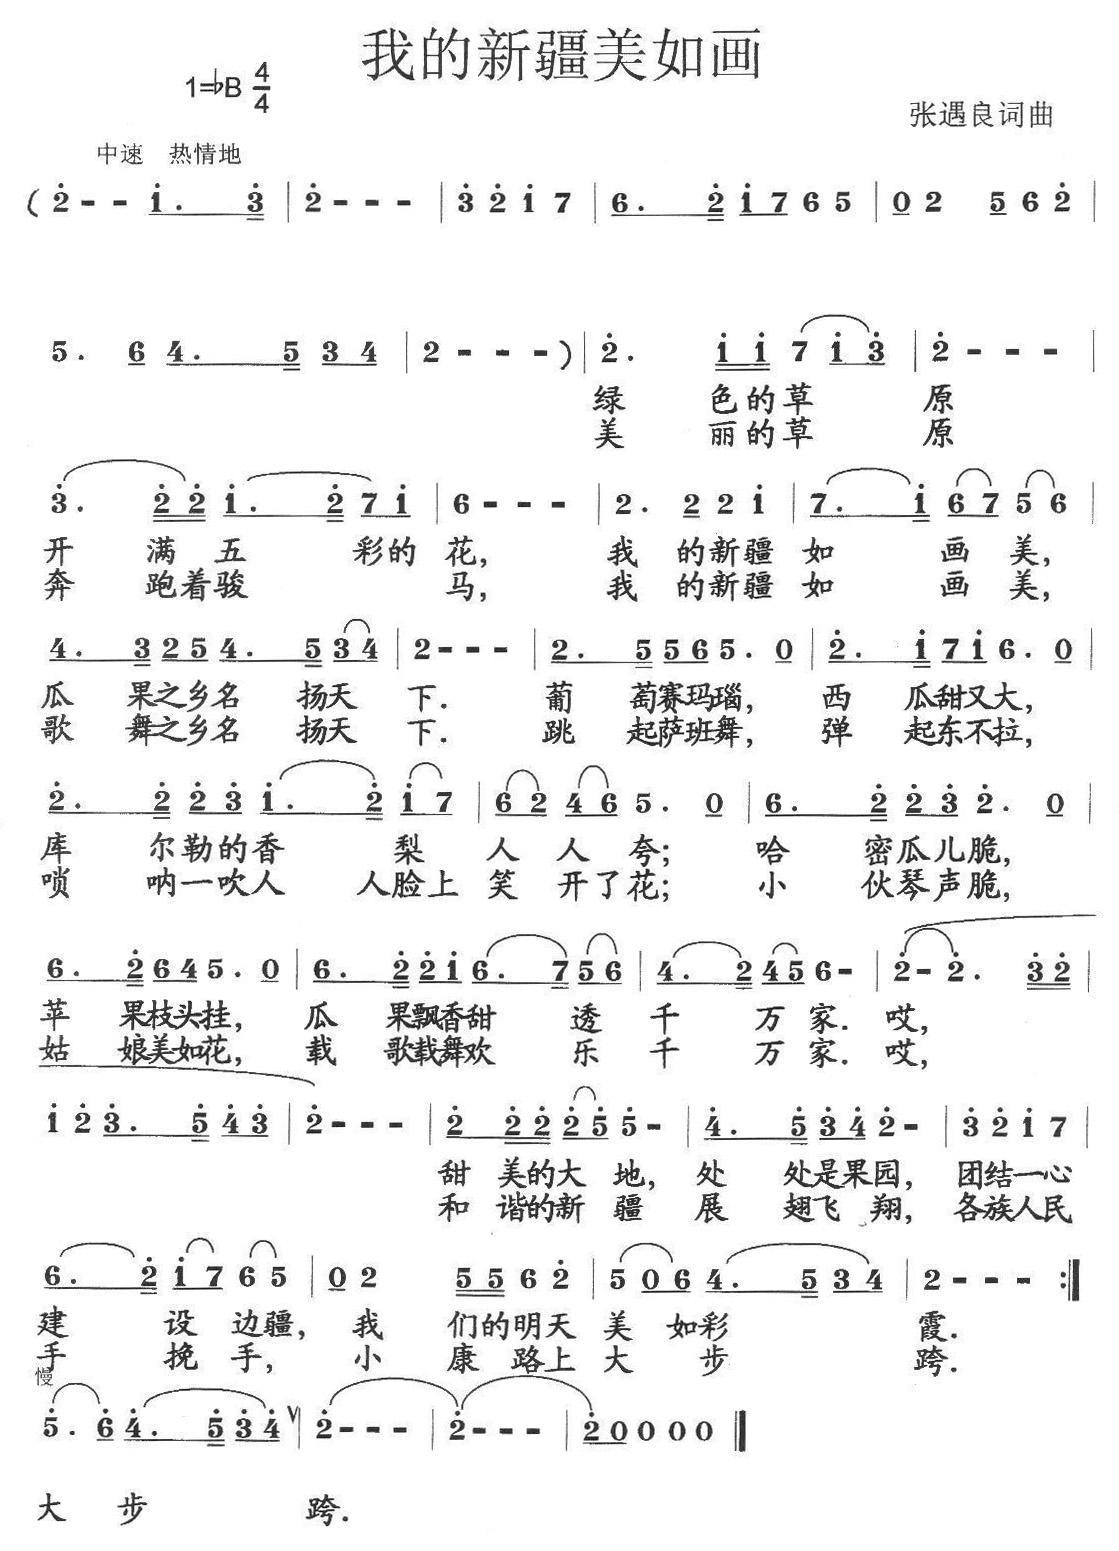 我的新疆美如画
1=♭B 4/4
张遇良词曲
中速 热情地
( 2̇ - - 1̇ . 3̇ | 2̇ - - - | 3̇ 2̇ 1̇ 7 | 6 . 2̇ 1̇ 7 6 5 | 0 2 5 6 2̇ |
5 . 6 4 . 5 3 4 | 2 - - - ) | 2̇ . 1̇ 1̇ 7 1̇ 3̇ | 2̇ - - - |
绿 色的草 原
美 丽的草 原
3̇ . 2̇ 2̇ 1̇ . 2̇ 7 1̇ | 6 - - - | 2 . 2 2 1̇ | 7 . 1̇ 6 7 5 6 |
开 满 五 彩的 花, 我 的新疆 如 画 美,
奔 跑着骏 马, 我 的新疆 如 画 美,
4 . 3 2 5 4 . 5 3 4 | 2 - - - | 2 . 5 5 6 5 . 0 | 2̇ . 1̇ 7 1̇ 6 . 0 |
瓜 果之乡名 扬天 下. 葡 萄赛玛瑙, 西 瓜甜又大,
歌 舞之乡名 扬天 下. 跳 起萨班舞, 弹 起东不拉,
2̇ . 2̇ 2̇ 3̇ 1̇ . 2̇ 1̇ 7 | 6 2 4 6 5 . 0 | 6 . 2̇ 2̇ 3̇ 2̇ . 0 |
库 尔勒的香 梨 人 人 夸; 哈 密瓜儿脆,
唢 呐一吹人 人脸上 笑 开了花; 小 伙琴声脆,
6 . 2̇ 6 4 5 . 0 | 6 . 2̇ 2̇ 1̇ 6 . 7 5 6 | 4 . 2 4 5 6 - | 2̇ - 2̇ . 3̇ 2̇ |
苹 果枝头挂, 瓜 果飘香甜 透 千 万 家. 哎,
姑 娘美如花, 载 歌载舞欢 乐 千 万 家. 哎,
1̇ 2̇ 3̇ . 5̇ 4̇ 3̇ | 2̇ - - - | 2̇ 2̇ 2̇ 2̇ 5̇ 5̇ - | 4̇ . 5̇ 3̇ 4̇ 2̇ - | 3̇ 2̇ 1̇ 7 |
甜 美的大 地, 处 处是果园, 团结一心
和 谐的新 疆 展 翅飞 翔, 各族人民
6 . 2̇ 1̇ 7 6 5 | 0 2 5 5 6 2̇ | 5 0 6 4 . 5 3 4 | 2 - - - :‖
建 设 边疆, 我 们的明天 美 如彩 霞.
手 挽 手, 小 康 路上 大 步 跨.
慢
5̇ . 6̇ 4̇ . 5̇ 3̇ 4̇ ∨ | 2̇ - - - | 2̇ - - - | 2̇ 0 0 0 0 ‖
大 步 跨.